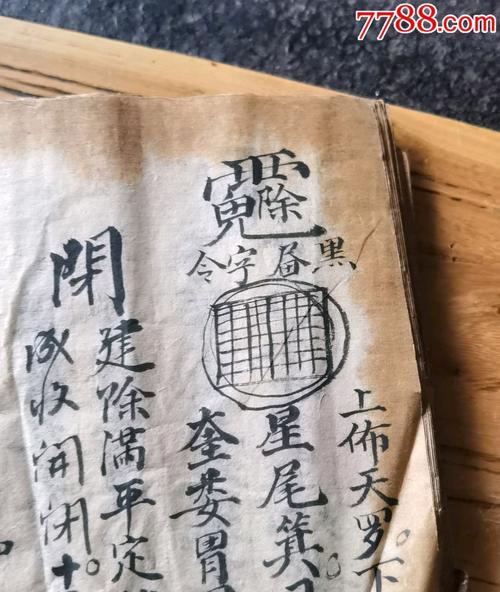 7788.com
上佈天罗。下
令字黑
星尾箕
奎娄胃
閉
建除满平定
成收開闭十